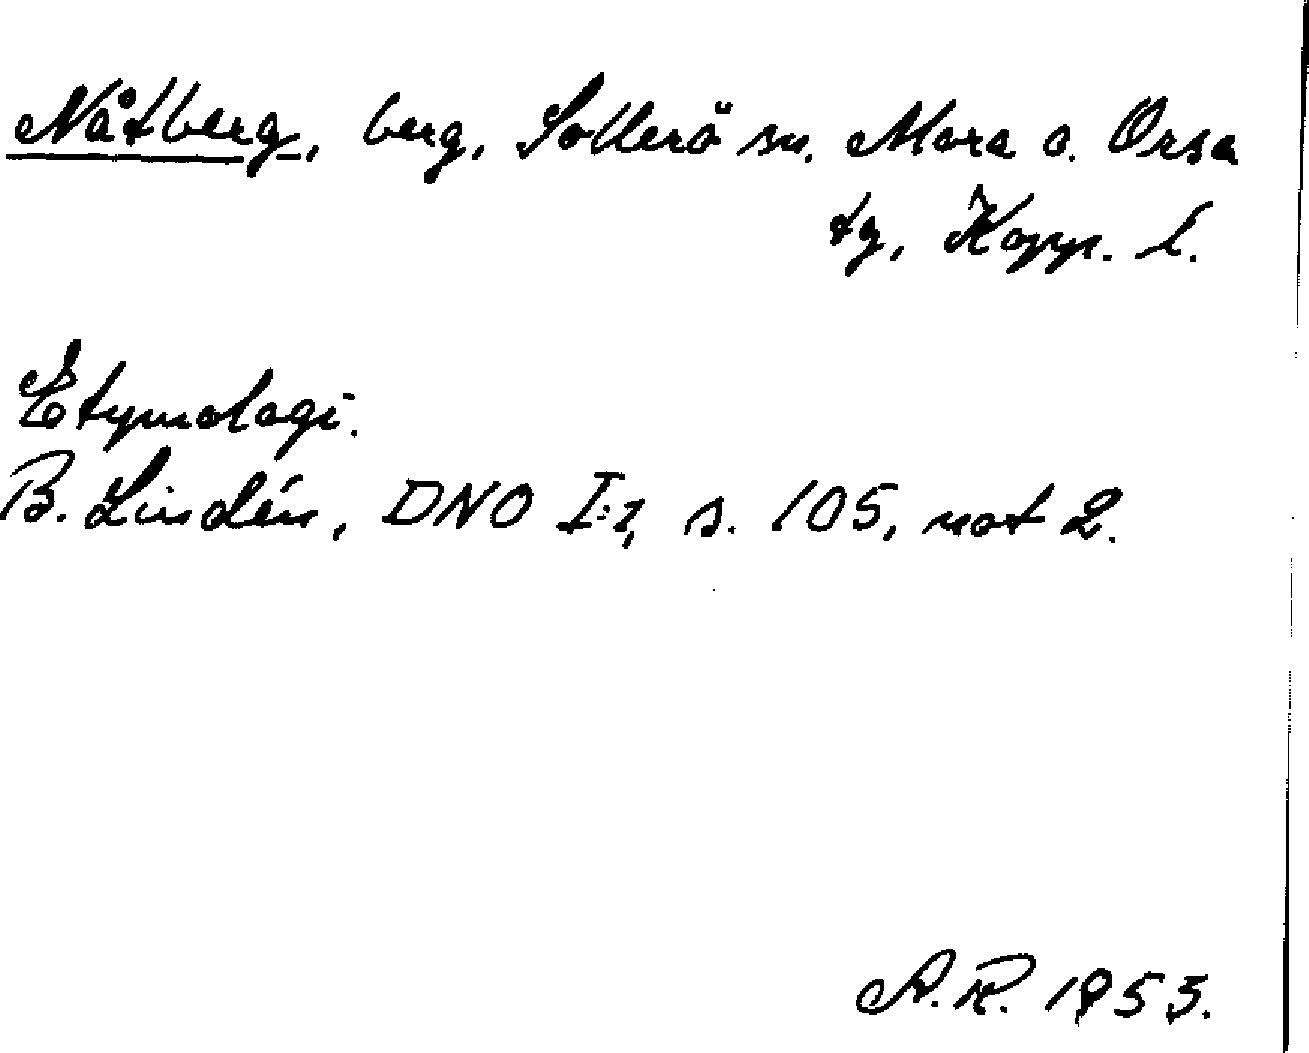 Nåtberg, berg, Sollerö sn. Mora o. Orsa
tg, Kopp. l.
Etymologi.
B. Lindén, DNO I:1, s. 105, not 2.
A.R. 1953.